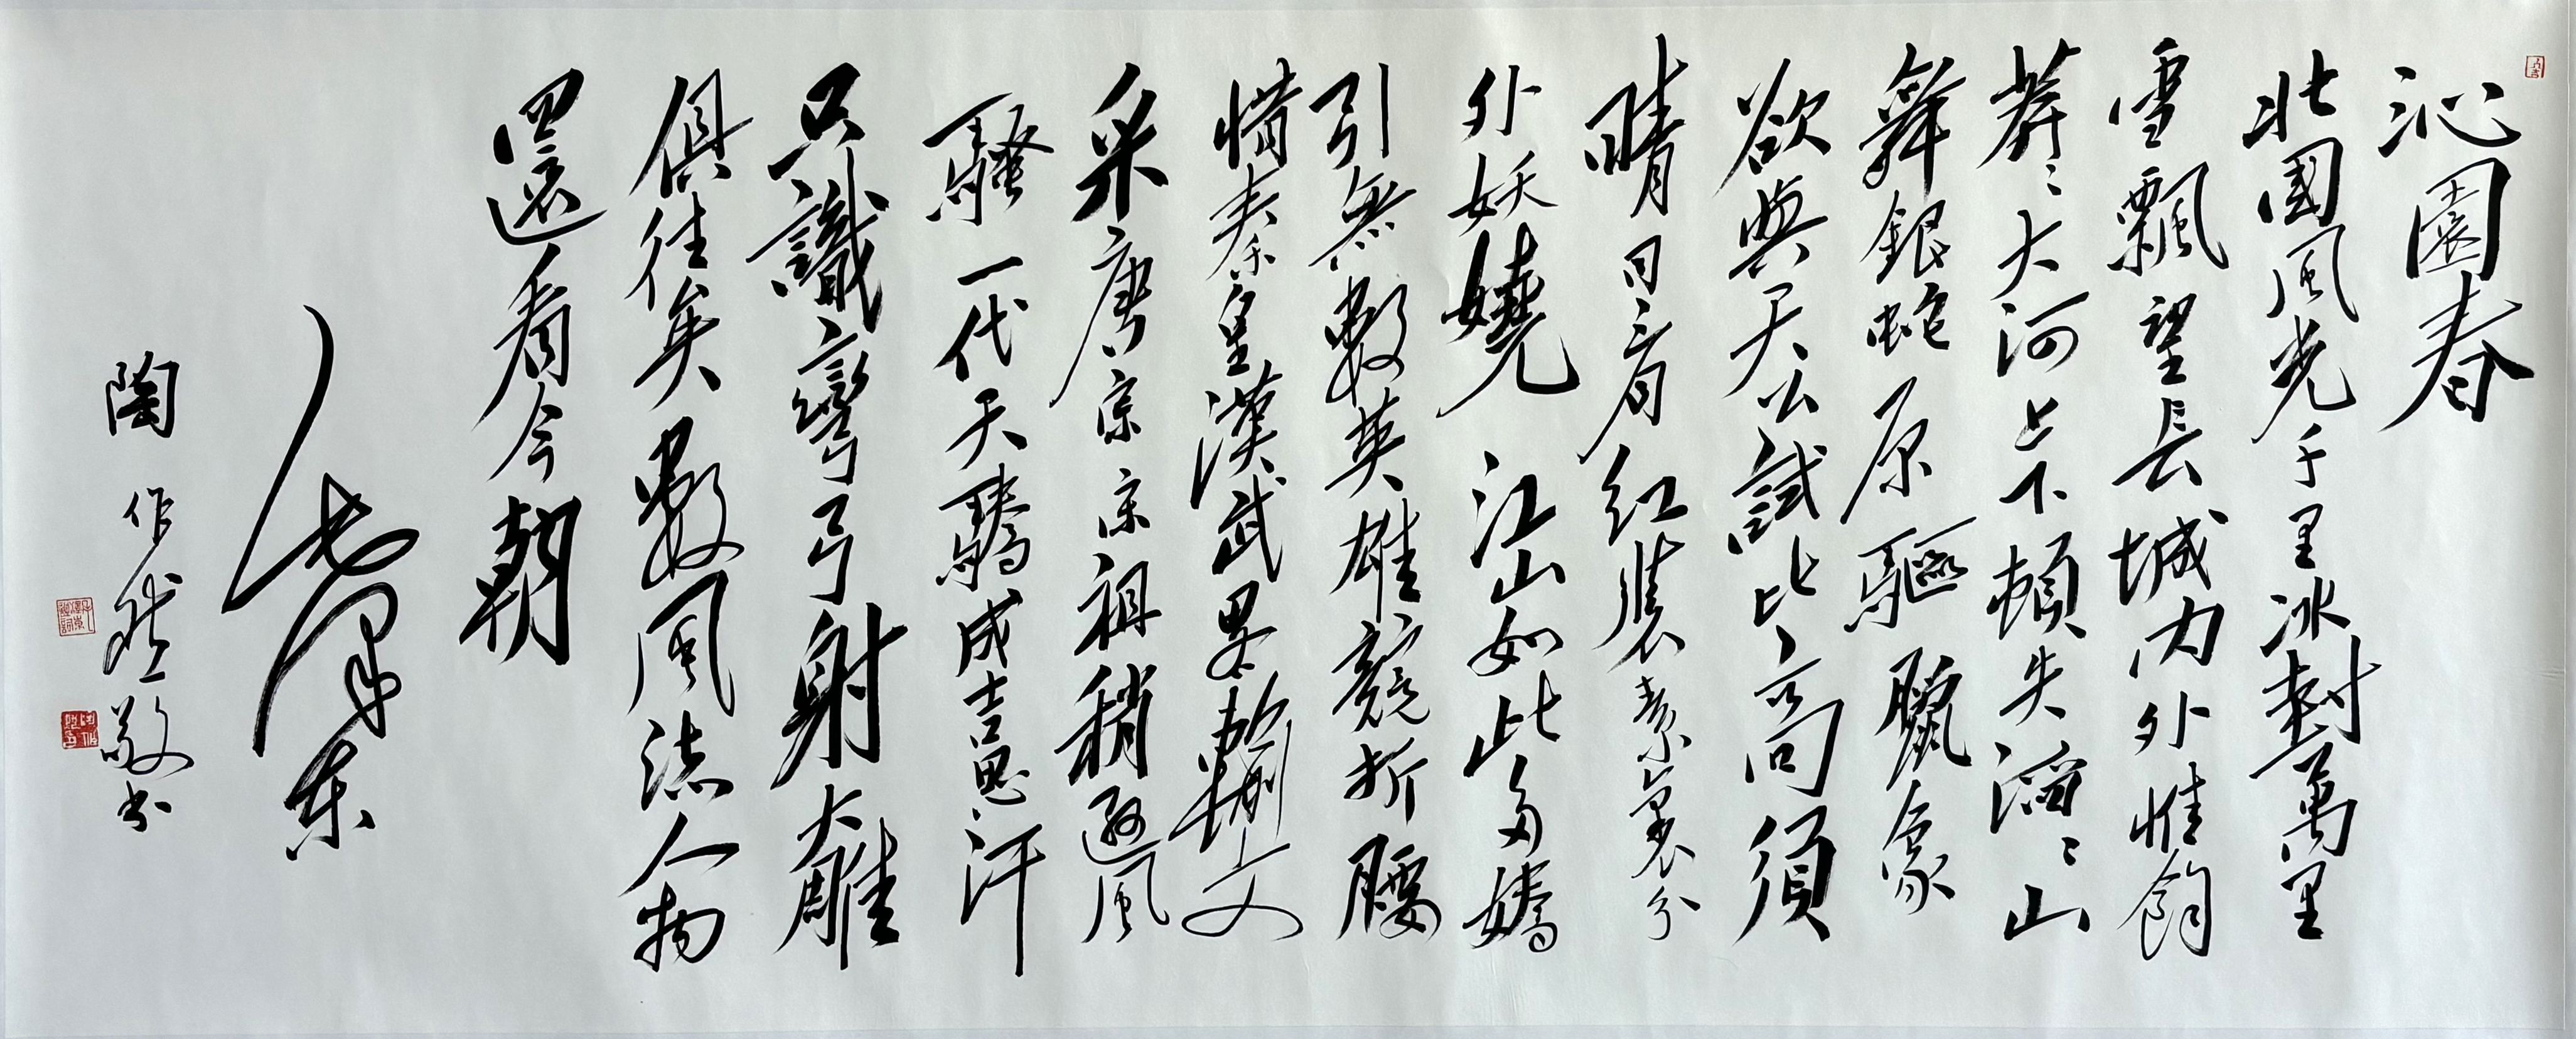 沁園春
北國風光千里冰封萬里
雪飄望長城内外惟餘
莽〻大河上下頓失滔〻山
舞銀蛇原驅臘象
欲與天公試比高須
晴日看紅裝素裹分
外妖嬈江山如此多嬌
引無數英雄競折腰
惜秦皇漢武略輸文
采唐宗宋祖稍遜風
騷一代天驕成吉思汗
只識彎弓射大雕
俱往矣數風流人物
還看今朝
毛澤东
陶作 敬书